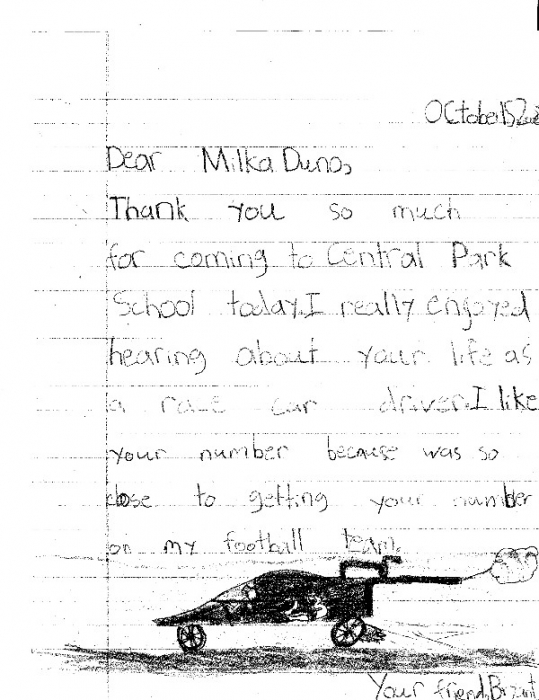 October 15, 
Dear Milka Duno,
Thank you so much
for coming to Central Park
School today. I really enjoyed
hearing about your life as
a race car driver. I like
your number because was so
close to getting your number
on my football team.
Your friend,